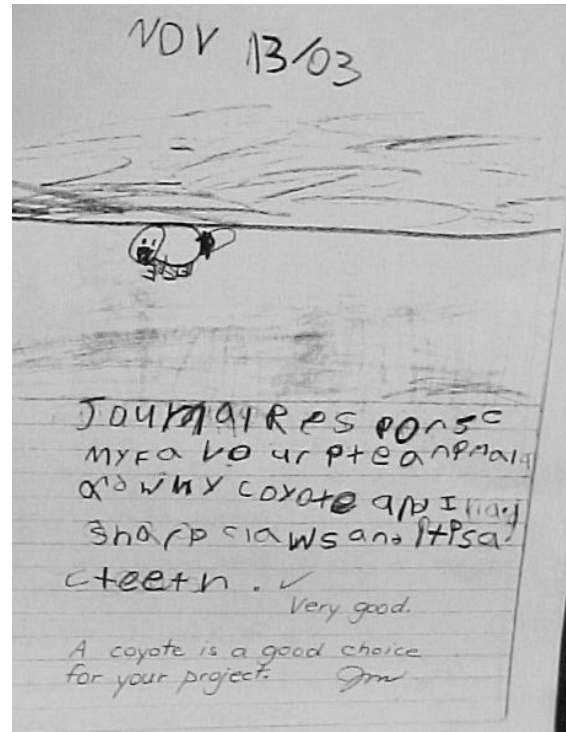 NOV 13/03
Journal Response
my favourpte anpmal
and why coyote
sharp claws and ptpsa
cteeth.
Very good.
A coyote is a good choice
for your project.